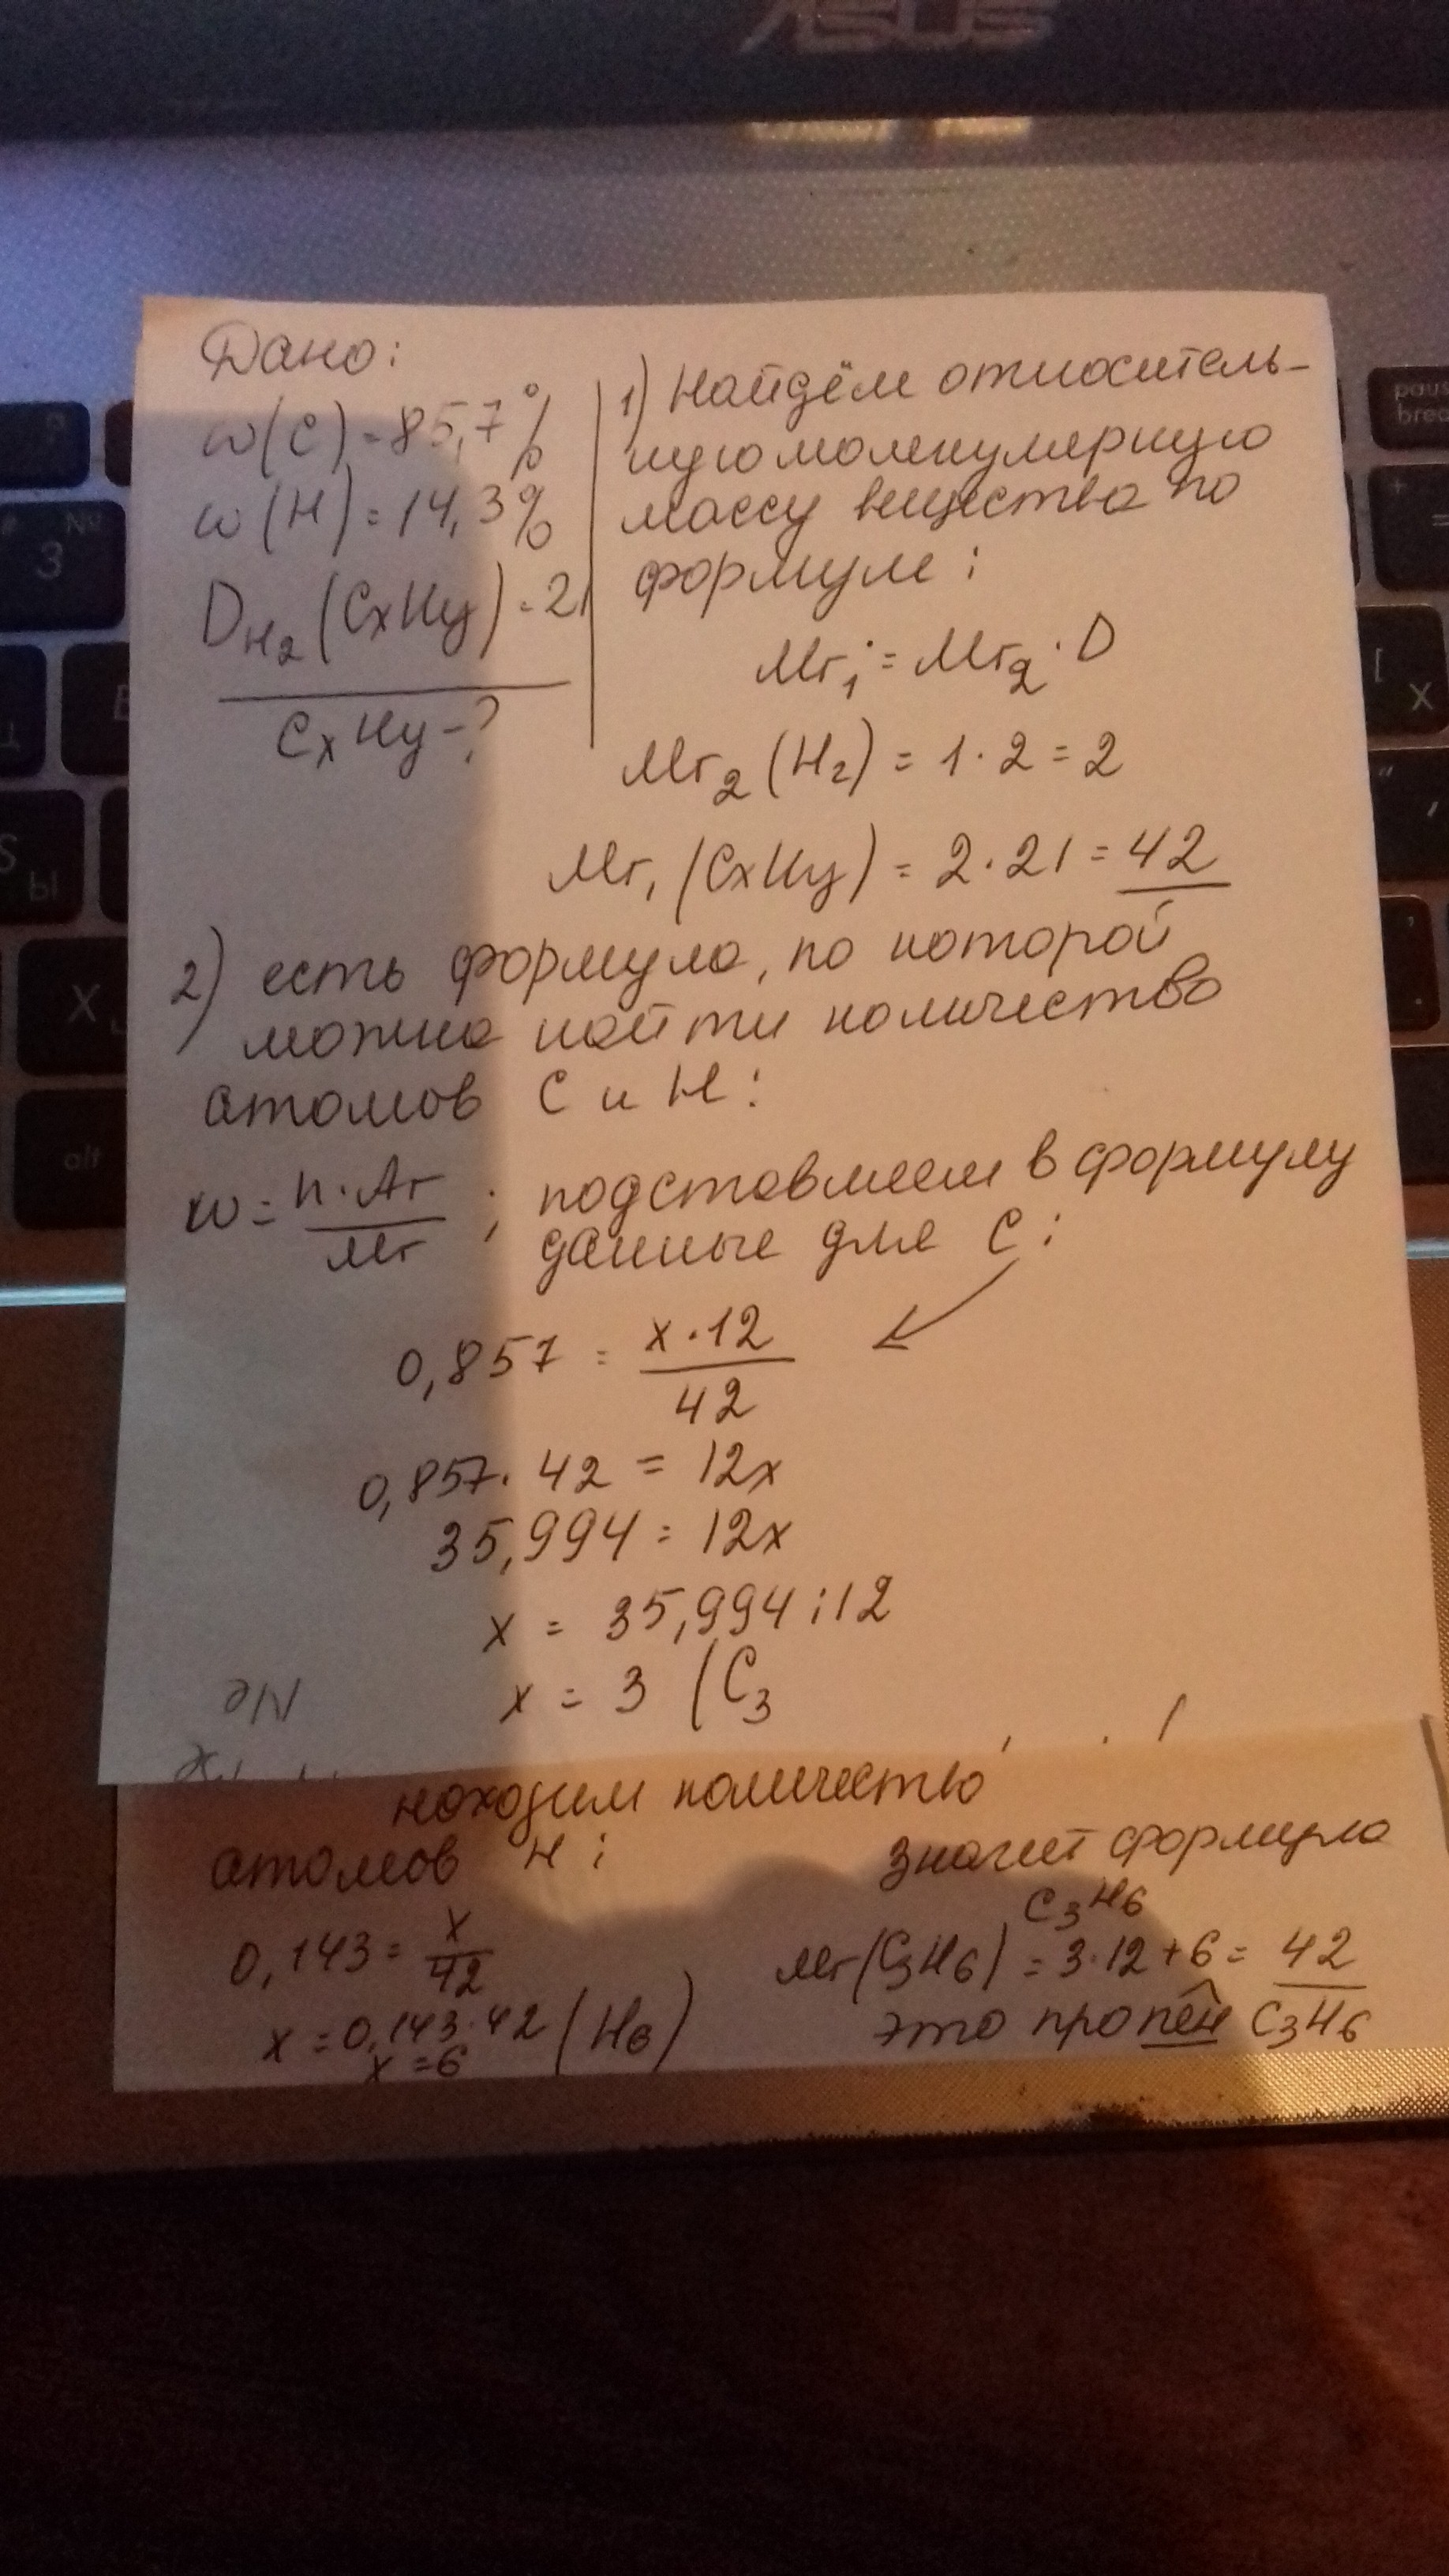 ASUS
Дано:
w(C) = 85,7%
w(H) = 14,3%
D H₂ (CxHy) = 21
CxHy - ?
1) Найдём относитель-
ную молекулярную
массу вещества по
формуле:
Mr₁ = Mr₂ · D
Mr₂ (H₂) = 1 · 2 = 2
Mr₁ (CxHy) = 2 · 21 = 42
2) есть формула, по которой
можно найти количество
атомов C и H:
w = n · Ar / Mr ; подставляем в формулу
данные для C:
0,857 = x · 12 / 42
0,857 · 42 = 12x
35,994 = 12x
x = 35,994 : 12
x = 3 (C₃
находим количество
атомов H:
0,143 = x / 42
x = 0,143 · 42 (H₆)
x = 6
значит формула
C₃H₆
Mr(C₃H₆) = 3·12 + 6 = 42
это пропен C₃H₆
pause
break
№
3
+
=
]
X
S
Ы
X
alt